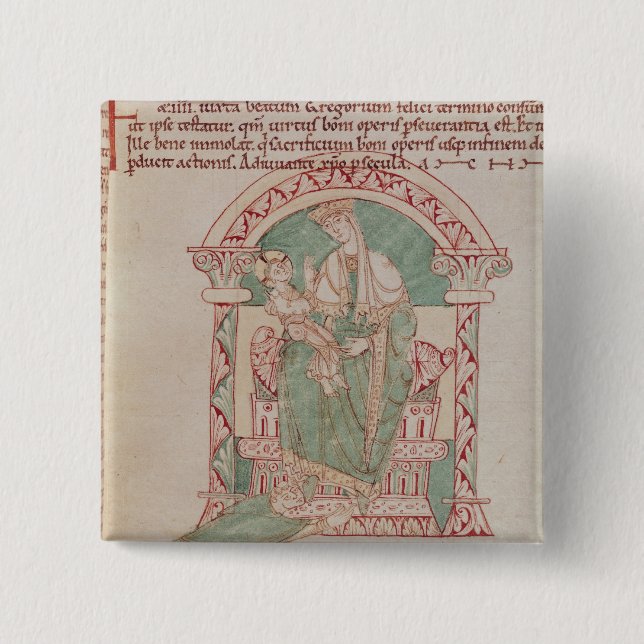 æ.iiii. iuxta beatum Gregorium felici termino consum
ut ipse testatur. qm̄ virtus boni operis ꝑseverantia est. Et
ille bene immolat. q̇ sacrificium boni operis usq; in finem de
ꝑducit actionis. Adiuvante xp̄o ꝑ secula. A